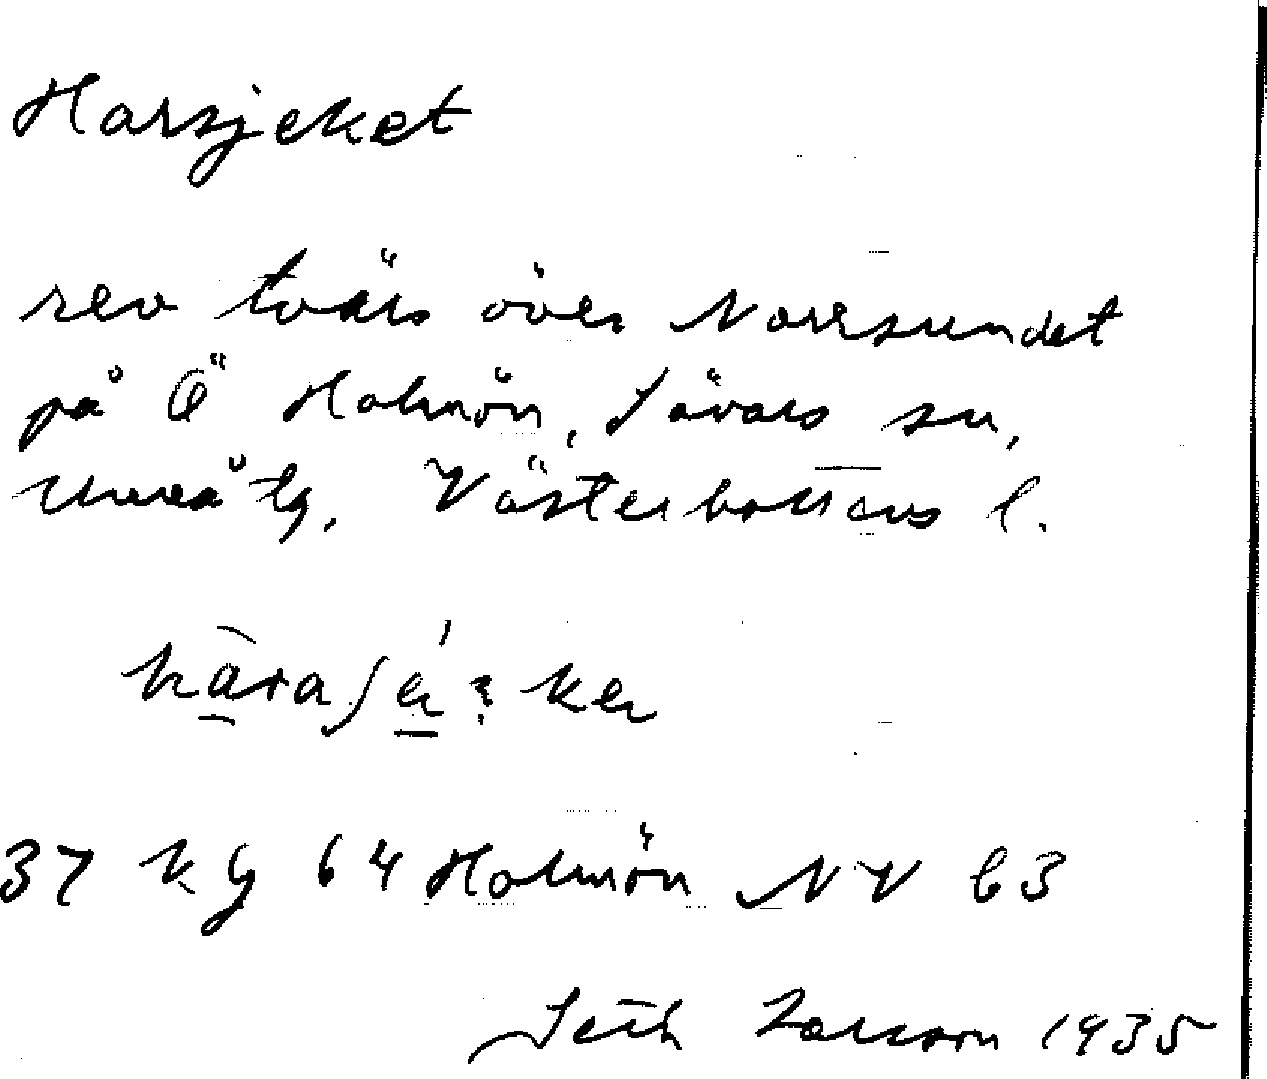 Harsjeket
rev tvärs över Norrsundet
på Ö Holmön, Sävars sn,
Umeå tg, Västerbottens l.
37 kg 64 Holmön NV b3
Seth Larsson 1935